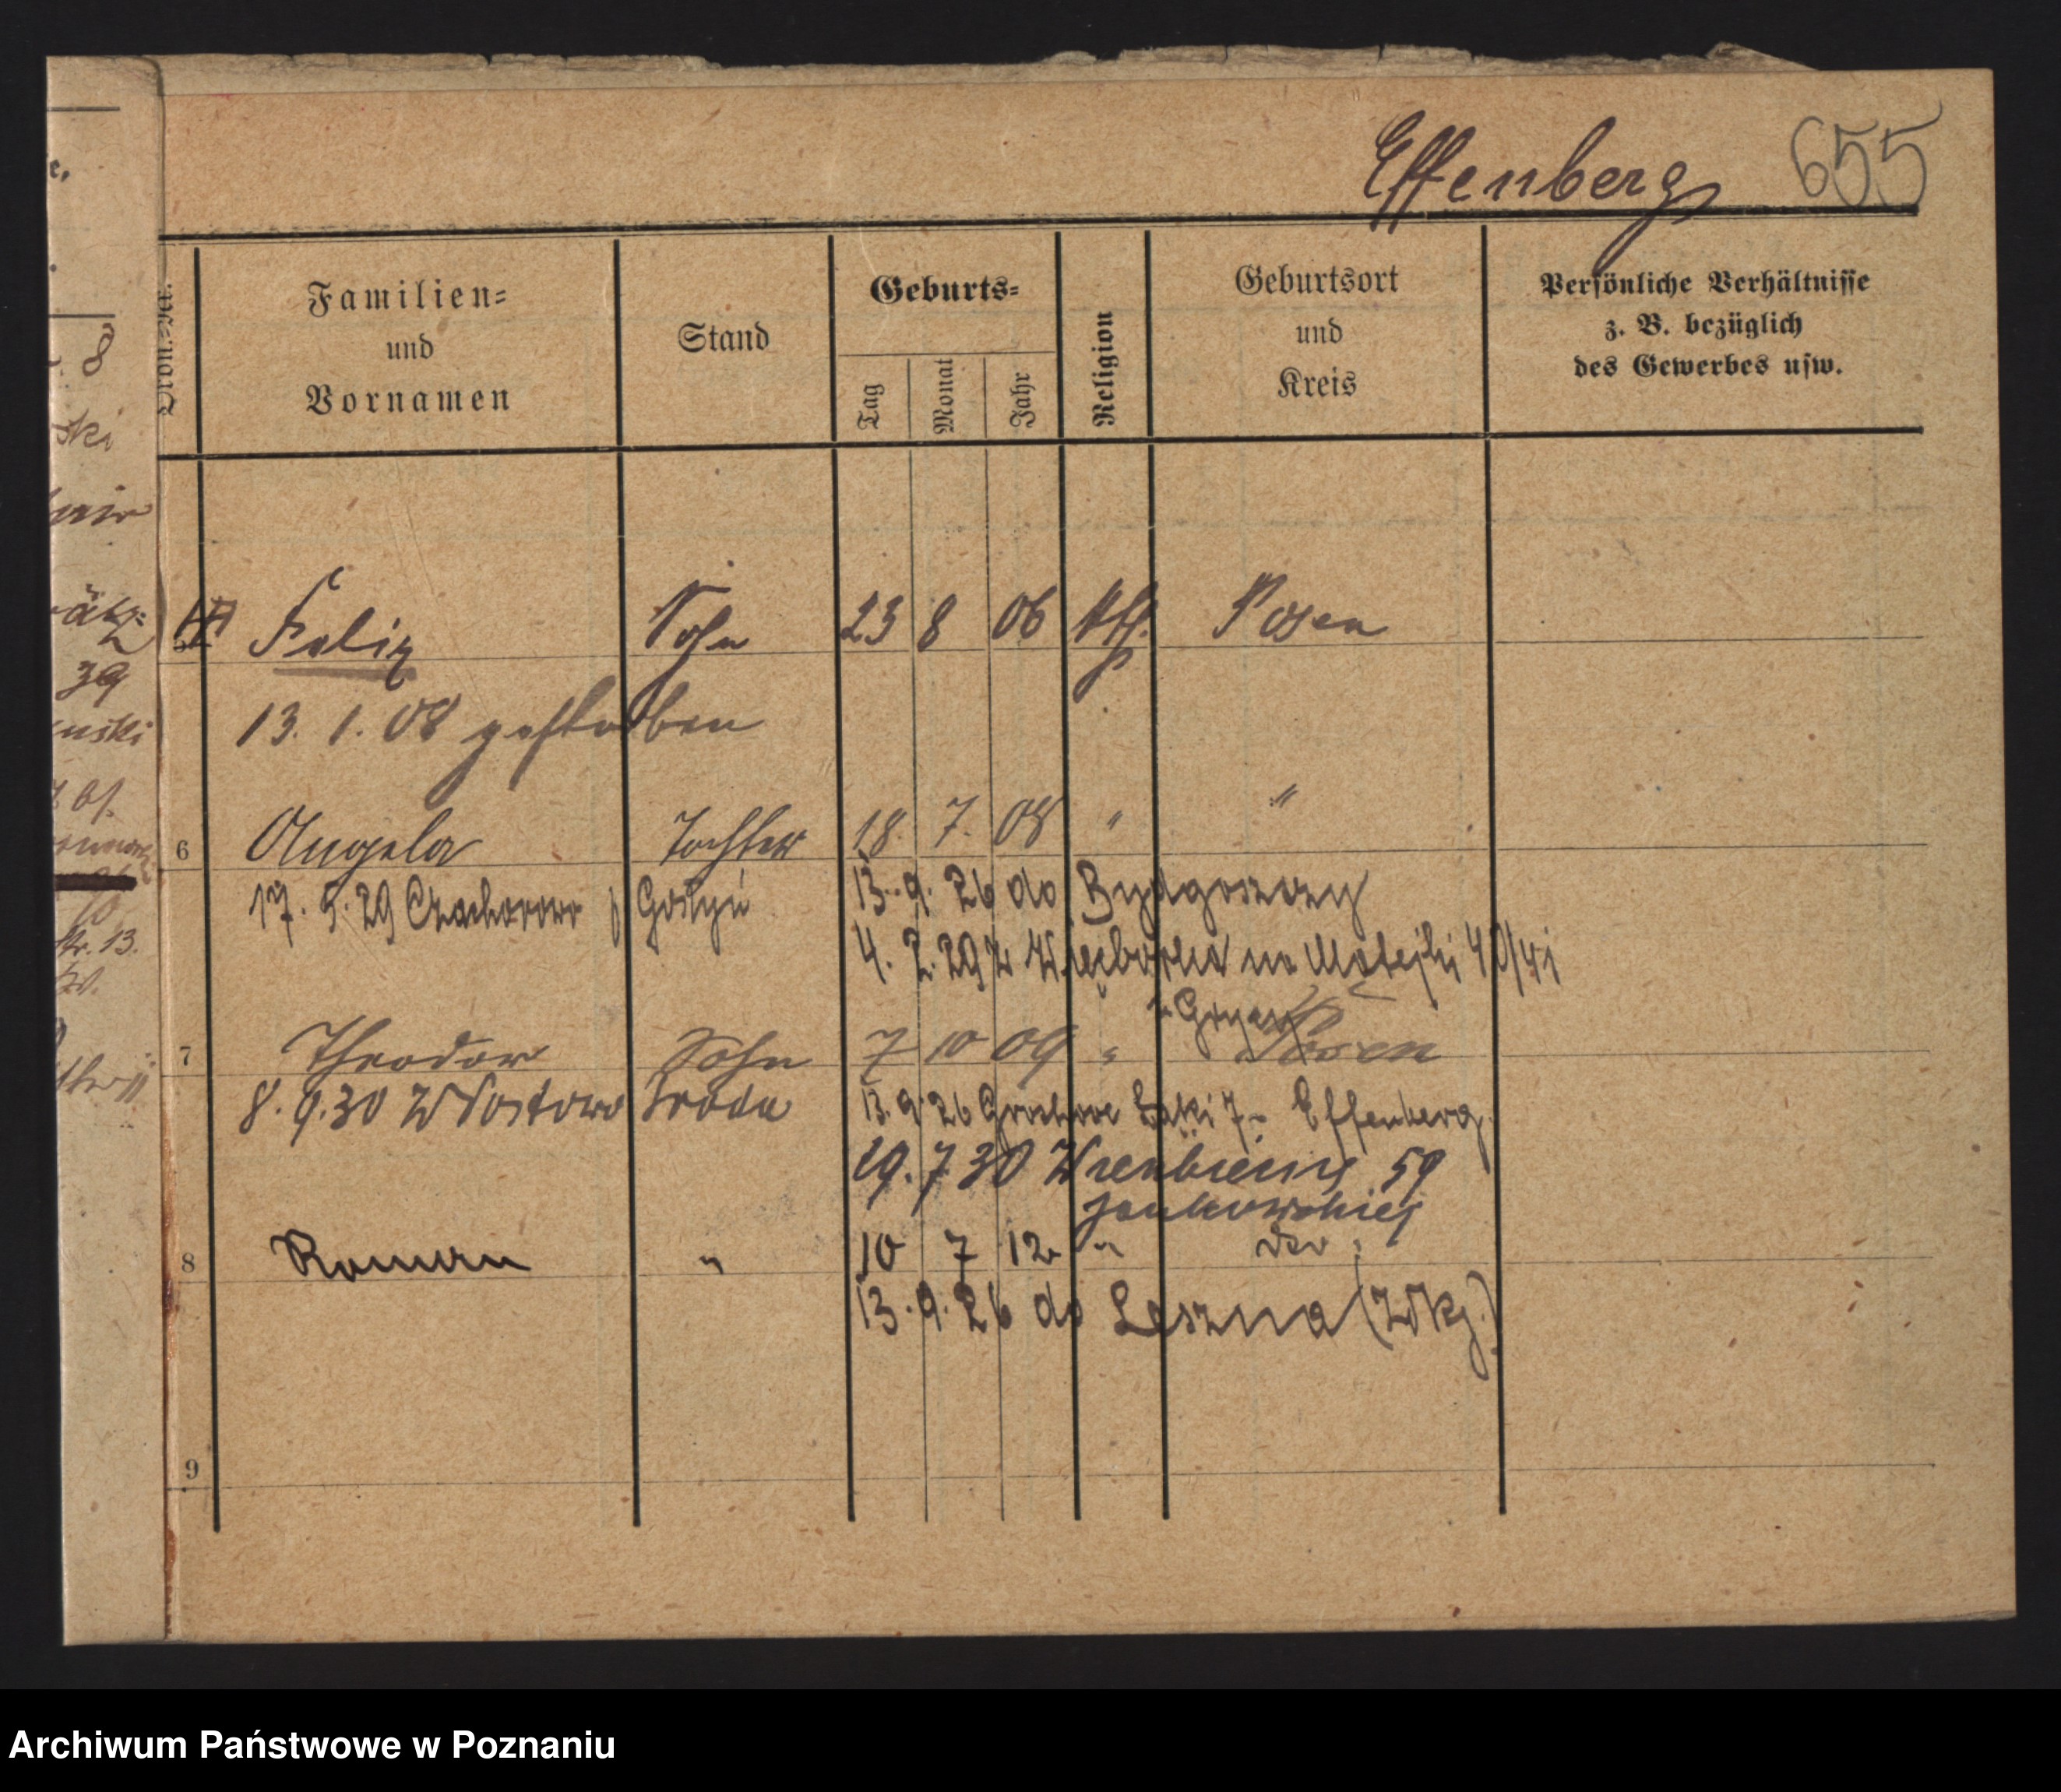 Effenberg 655
Familien=
und
Vornamen
Stand
Geburts=
Tag
Monat
Jahr
Religion
Geburtsort
und
Kreis
Persönliche Verhältnisse
z. B. bezüglich
des Gewerbes usw.
8
ski
39
nski
str. 13.
Felix Sohn 23 8 06 kth. Posen
13. 1. 08 gestorben
6 Angela Tochter 18. 7. 08 " "
17. 5. 29 Czachorowo p Gostyń 13. 9. 26 do Bydgoszczy
4. 2. 29 z Więcborka na Matejki 40/41
7 Theodor Sohn 7 10 09 " Posen
8. 9. 30 Włostowo Środa 13. 9. 26 Grochowe Łąki 7 - Effenberg.
19. 7 30 59
Jankowskiej
8 Roman " 10 7 12 " do
13. 9. 26 do Leszna (Wlkp.)
9
Archiwum Państwowe w Poznaniu